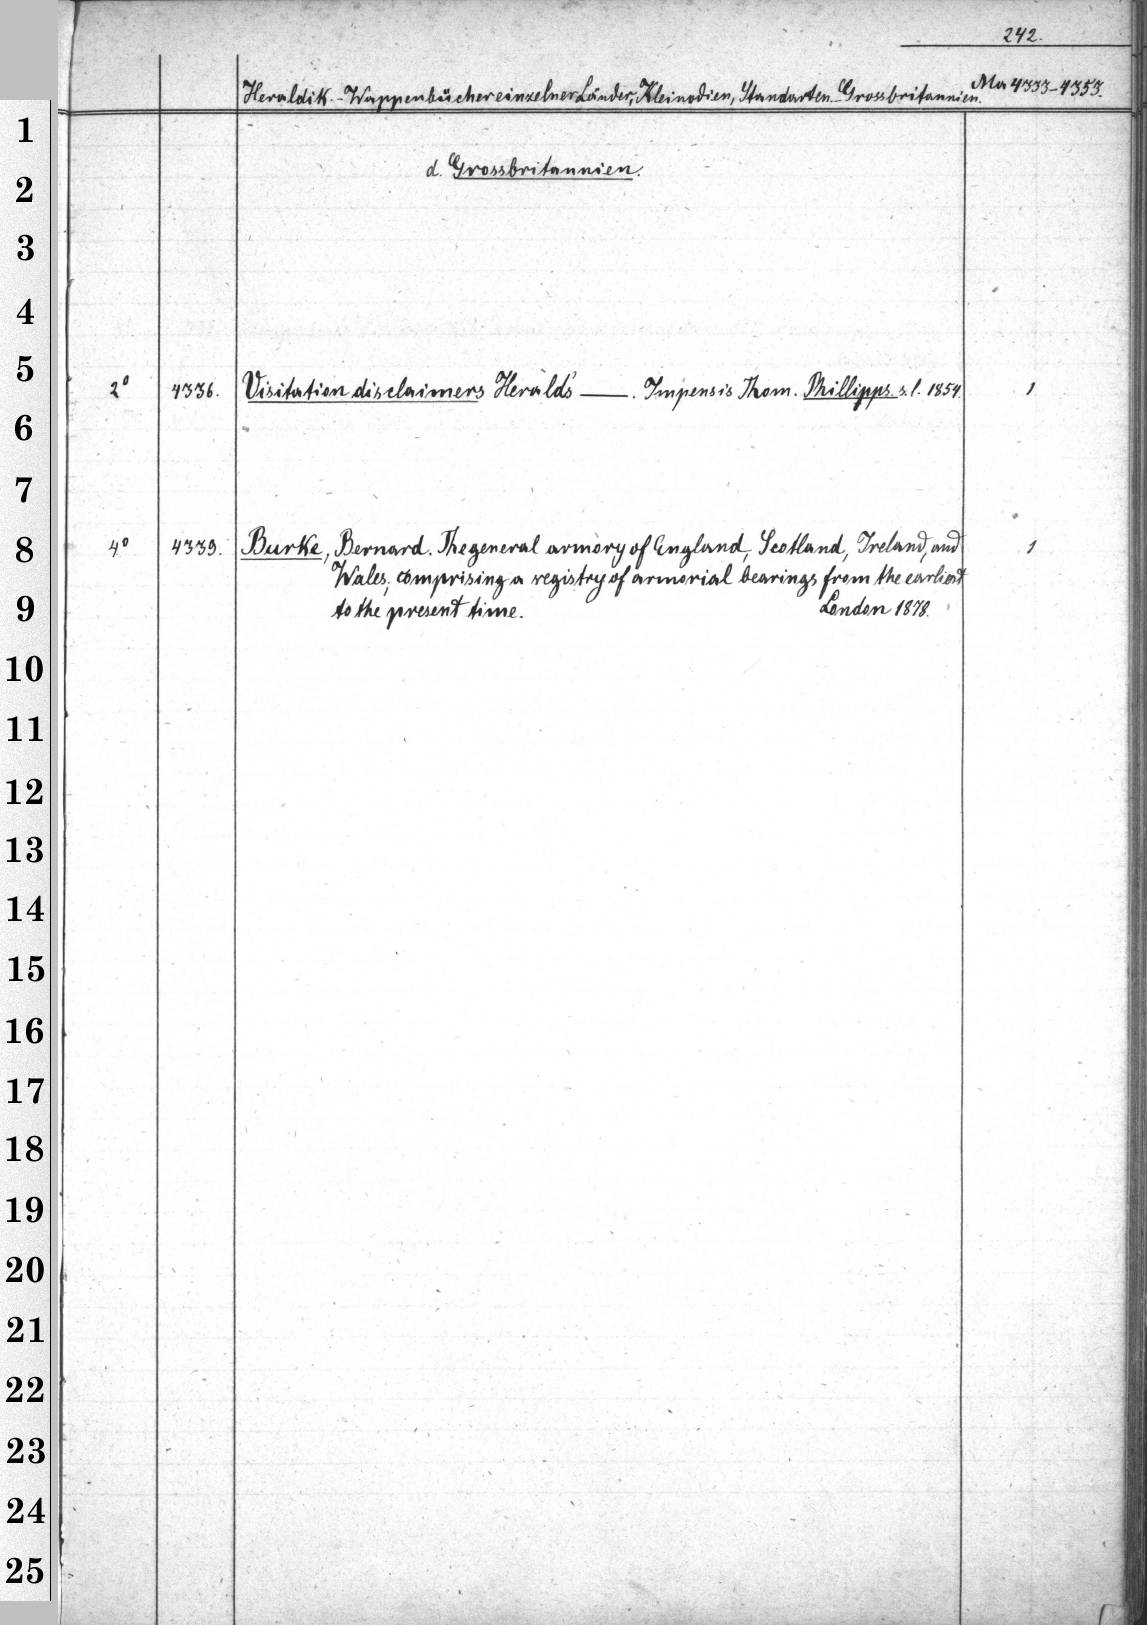 242.
Heraldik.-Wappenbücher einzelner Länder, Kleinodien, Standarten.-Grossbritannien. Ma 4333-4353.
d. Grossbritannien.
2° 4336. Visitation disclaimers Heralds' ——. Impensis Thom. Phillipps. s.l. 1854. 1
4° 4339. Burke, Bernard. The general armory of England, Scotland, Ireland, and 1
Wales, comprising a registry of armorial bearings from the earliest
to the present time. London 1878.
1
2
3
4
5
6
7
8
9
10
11
12
13
14
15
16
17
18
19
20
21
22
23
24
25